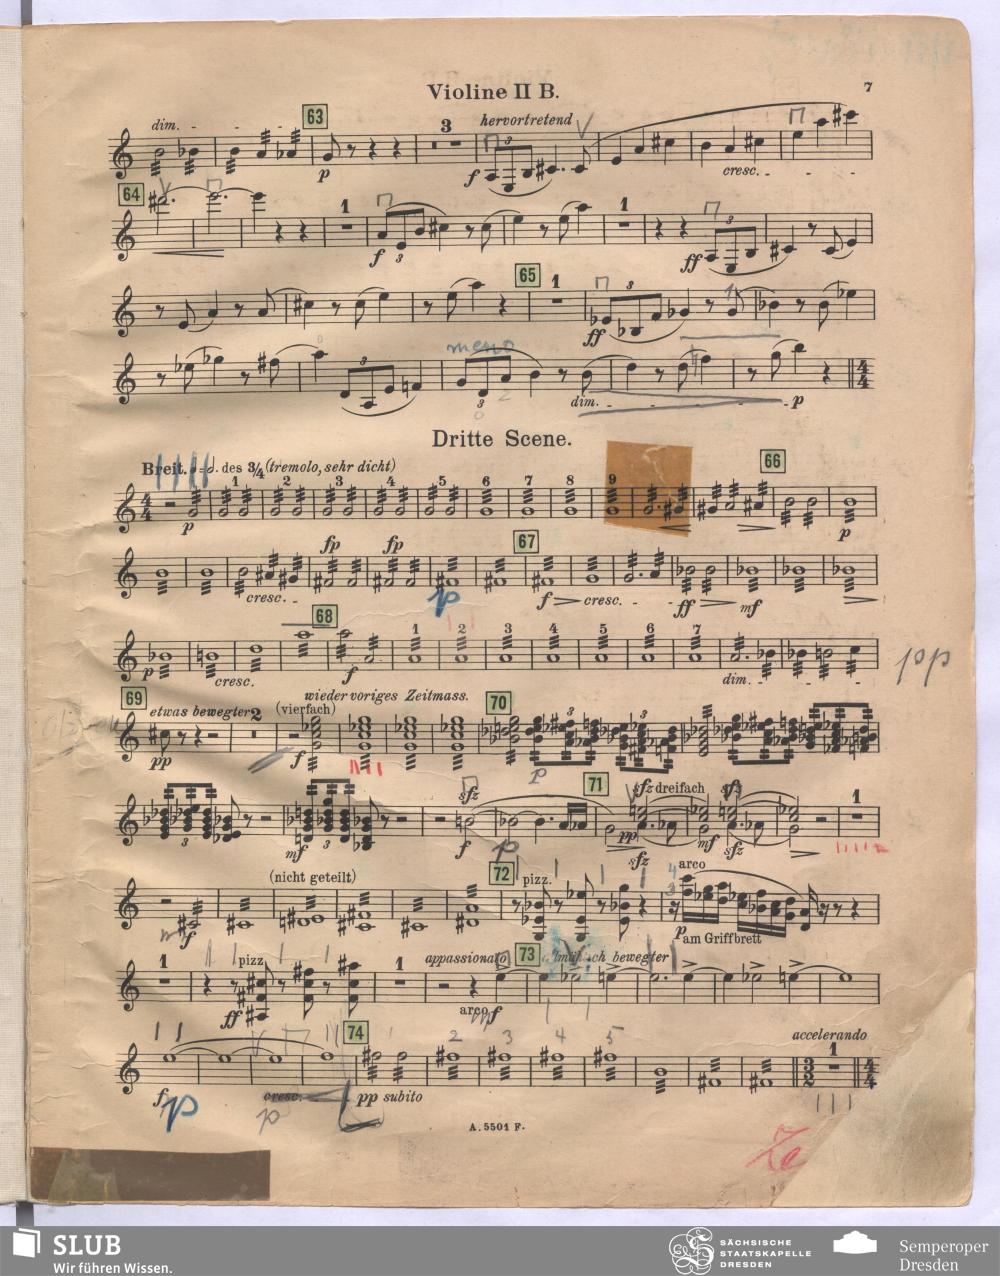 Violine II B.
7
dim. - - - - 63 3 hervortretend
p f 3 cresc. - - - -
64 1 1
f 3 ff 3
65 1 3
ff
meno
3 3 dim. - - - - p
4/4
Dritte Scene.
Breit. des 3/4 (tremolo, sehr dicht) 66
4/4 1 2 3 4 5 6 7 8 9
p p
fp fp 67
cresc. - p f cresc. - - ff mf
68 1 2 3 4 5 6 7
p cresc. f dim. - - - -
pp
69 etwas bewegter 2 (vierfach) wieder voriges Zeitmass. 70 3 3
pp f p
sfz 71 sfz dreifach sfz 1
3 mf 3 f p pp sfz mf sfz
(nicht geteilt) 72 pizz. arco
f p am Griffbrett
1 pizz. 1 appassionato 73
bewegter
ff arco f
74 2 3 4 5 accelerando
1
3/2 4/4
f p cresc. p pp subito
A. 5501 F.
SLUB
Wir führen Wissen.
SÄCHSISCHE
STAATSKAPELLE
DRESDEN
Semperoper
Dresden